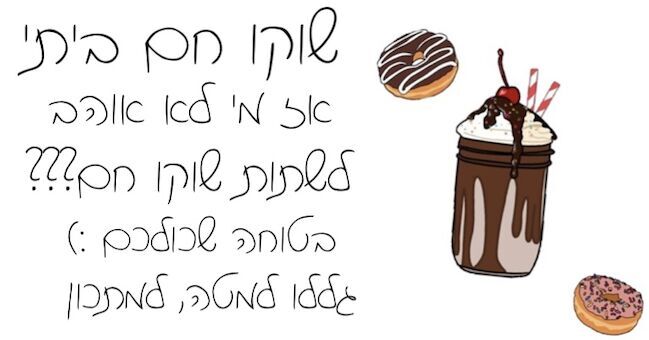 שוקו חם ביתי
אז מי לא אוהב
לשתות שוקו חם???
בטוחה שכולכם :)
גללו למטה, למתכון